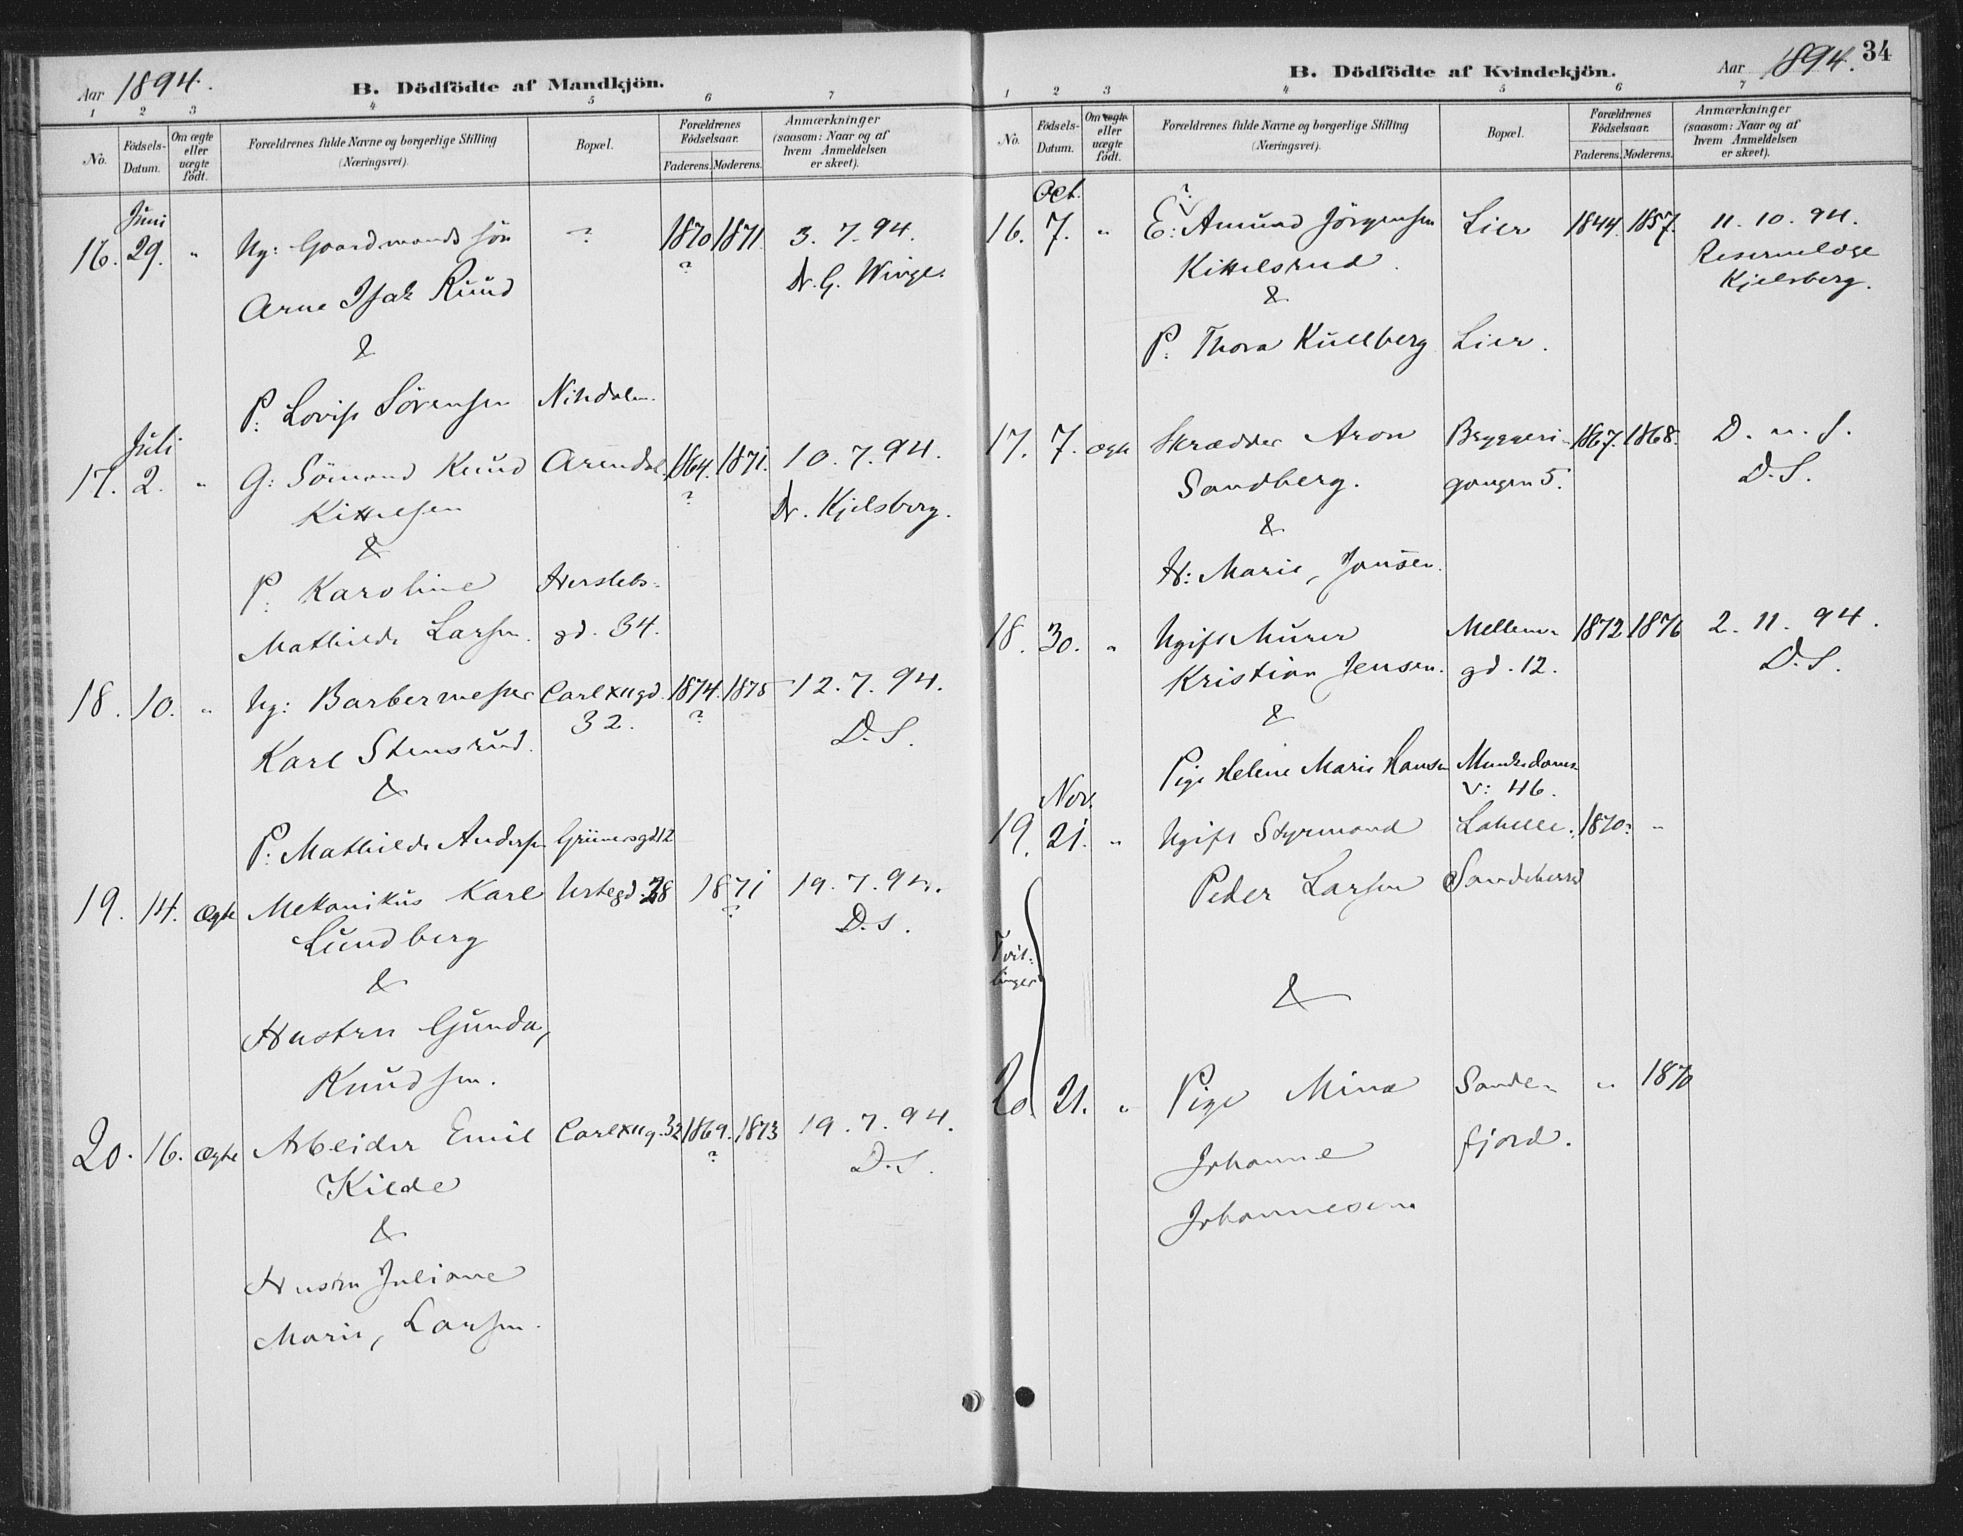 Aar 1894.
B. Dödfödte af Mandkjön.
1 2 3 4 5 6 7
No.
Födsels-
Datum.
Om ægte
eller
uægte
födt.
Forældrenes fulde Navne og borgerlige Stilling
(Næringsvei).
Bopæl.
Forældrenes
Födselsaar.
Faderens. Moderens.
Anmærkninger
(saasom: Naar og af
hvem Anmeldelsen
er skeet).
Juni
16. 29. " Ug: Gaardmands sön ? 1870 1871. 3. 7. 94.
Arne Isak Ruud ? Dr. G. Winge.
&
P: Lovise Sörensen Nitedalen.
Juli
17. 2. " G: Sömand Knud Arendal. 1864. 1871. 10. 7. 94.
Kittelsen ? Dr. Kjelsberg.
&
P: Karoline Herslebs-
Mathilde Larsen. gd. 34.
18. 10. " Ug: Barbermester Carl XII gd. 1874. 1875 12. 7. 94.
Karl Stensrud. 32. ? D. S.
&
P: Mathilde Andersen Grünersgd 12
19. 14. Ægte Mekanikus Karl Urtegd. 28 1871 19. 7. 94.
Lundberg ? D. S.
&
Hustru Gunda,
Knudsen.
20. 16. Ægte Arbeider Emil Carl XII g. 32 1869. 1873 19. 7. 94.
Kilde ? D. S.
&
Hustru Juliane
Marie, Larsen.
34
B. Dödfödte af Kvindekjön.
Aar 1894.
1 2 3 4 5 6 7
No.
Födsels-
Datum.
Om ægte
eller
uægte
födt.
Forældrenes fulde Navne og borgerlige Stilling
(Næringsvei).
Bopæl.
Forældrenes
Födselsaar.
Faderens. Moderens.
Anmærkninger
(saasom: Naar og af
hvem Anmeldelsen
er skeet).
Oct. ?
16. 7. " E: Amund Jörgensen Lier 1844. 1857. 11. 10. 94.
Kittelsrud. Reservelæge
& Kjelsberg.
P: Thora Kullberg Lier.
17. 7. Ægte Skrædder Aron Bryggeri- 1867. 1868. D. u. S.
Sandberg. gangen 5. D. S.
&
H: Marie, Jonsen.
18. 30. " Ugift Murer Mellem- 1872 1876 2. 11. 94.
Kristian Jensen. gd. 12. D. S.
&
Pige Helene Marie Hansen Munkedams-
v: 46.
Nov.
19. 21. " Ugift Styrmand 1870? "
Peder Larsen Sandeherred
Tvil-
linger
&
20. 21. " Pige Mina Sande- " 1870
Johanne fjord.
Johannesen